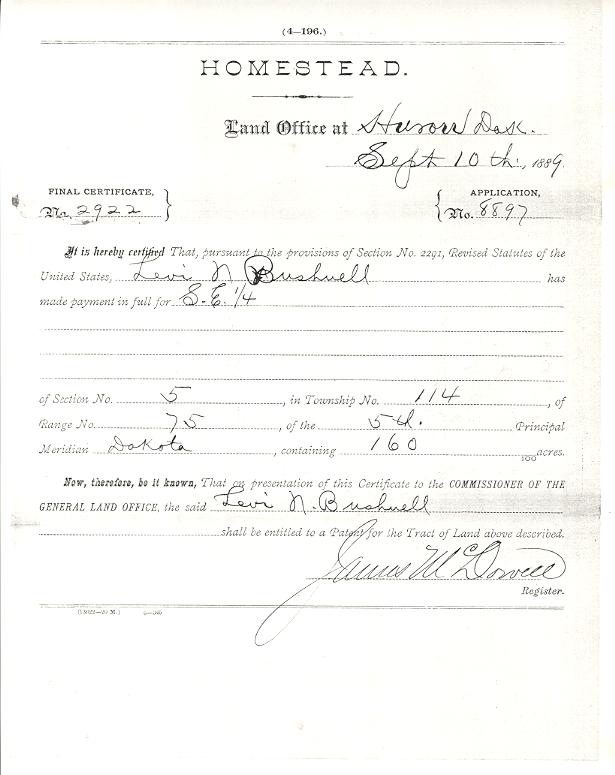 (4—196.)
HOMESTEAD.
Land Office at Huron Dak.
Sept 10th, 1889.
FINAL CERTIFICATE, No. 2922
APPLICATION, No. 8897
It is hereby certified That, pursuant to the provisions of Section No. 2291, Revised Statutes of the
United States, Levi N Bushnell has
made payment in full for S.E. 1/4
of Section No. 5, in Township No. 114, of
Range No. 75, of the 5th. Principal
Meridian Dakota, containing 160 /100 acres.
Now, therefore, be it known, That on presentation of this Certificate to the COMMISSIONER OF THE
GENERAL LAND OFFICE, the said Levi N. Bushnell
shall be entitled to a Patent for the Tract of Land above described.
James McDowell
Register.